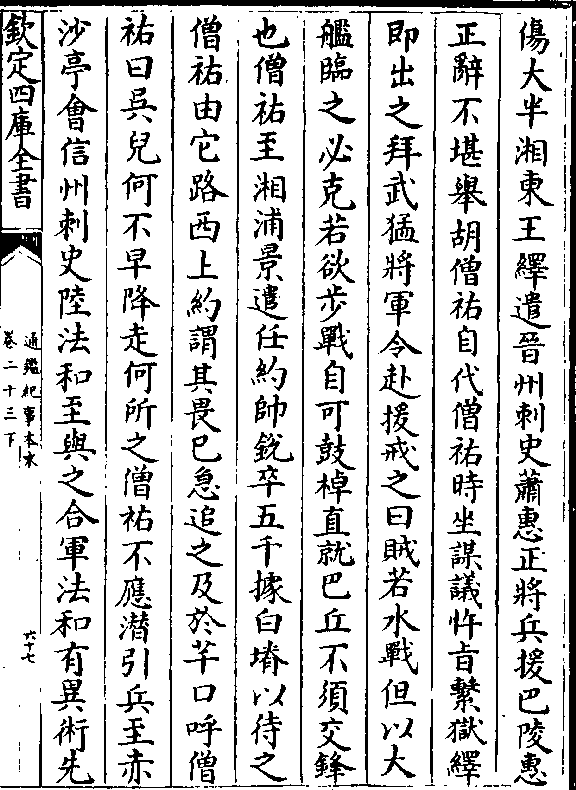 傷大半湘東王繹遣晉州刺史蕭惠正將兵援巴陵惠
正辭不堪舉胡僧祐自代僧祐時坐謀議忤旨繫獄繹
即出之拜武猛將軍令赴援戒之曰賊若水戰但以大
艦臨之必克若欲步戰自可鼓棹直就巴丘不須交鋒
也僧祐至湘浦景遣任約帥銳卒五千據白塉以待之
僧祐由它路西上約謂其畏已急追之及於芊口呼僧
祐曰吳兒何不早降走何所之僧祐不應潜引兵至赤
沙亭會信州刺史陸法和至與之合軍法和有異術先
欽定四庫全書
通鑑紀事本末
卷二十三下
六十七